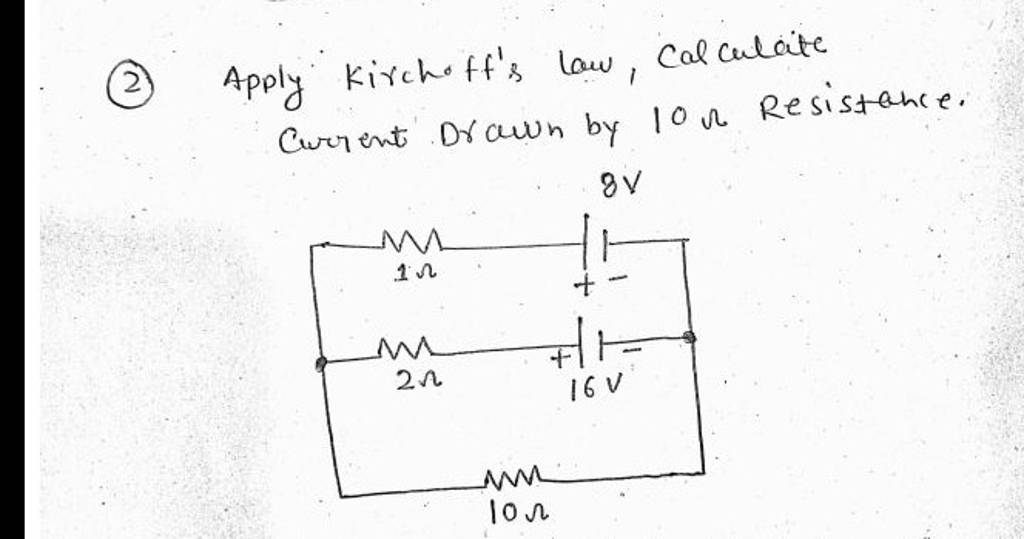 ② Apply Kirchoff's law, Calculate
Current Drawn by 10Ω Resistance.
8V
1Ω
+ -
+ -
2Ω
16V
10Ω